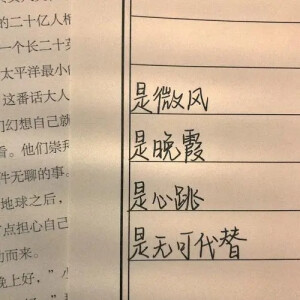 的二十亿人
一个长二十英
太平洋最小
这番话大人
们幻想自己就
看。他们崇拜
件无聊的事。
地球之后，
点担心自己
而来。
晚上好，”小
是微风
是晚霞
是心跳
是无可代替